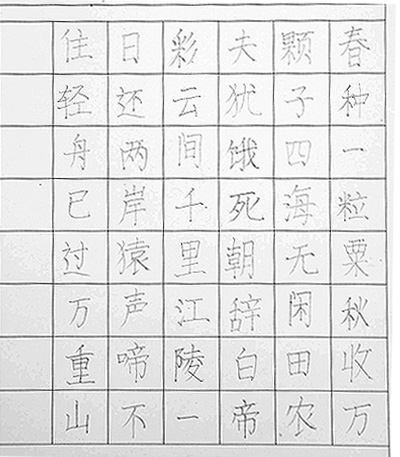 春种一粒粟秋收万
颗子四海无闲田农
夫犹饿死朝辞白帝
彩云间千里江陵一
日还两岸猿声啼不
住轻舟已过万重山